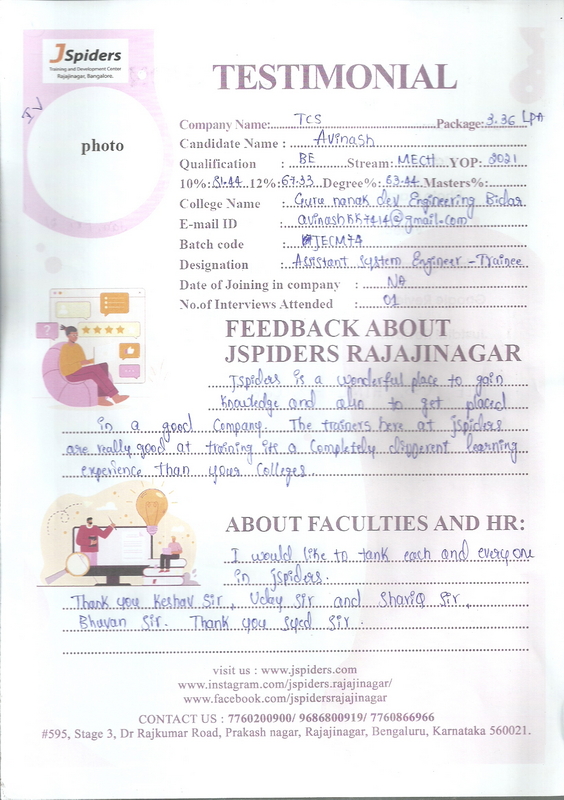 JSpiders
Training and Development Center
Rajajinagar, Bangalore.
TESTIMONIAL
photo
Company Name: TCS Package: 3.36 LPA
Candidate Name : Avinash
Qualification : BE Stream: MECH YOP: 2021
10%: 81.44 12%: 67.33 Degree%: 63.44 Masters%:
College Name : Guru nanak dev Engineering Bidar
E-mail ID : avinashkk7414@gmail.com
Batch code : JECM74
Designation : Assistant System Engineer - Trainee
Date of Joining in company : NA
No.of Interviews Attended : 01
FEEDBACK ABOUT
JSPIDERS RAJAJINAGAR
Jspiders is a wonderful place to gain
knowledge and also to get placed
in a good Company. The trainers here at jspiders
are really good at training its a Completely different learning
experience than your Colleges
ABOUT FACULTIES AND HR:
I would like to tank each and everyone
in jspiders.
Thank you Keshav Sir, Uday Sir and Shariq Sir,
Bhuvan Sir. Thank you Syed Sir.
visit us : www.jspiders.com
www.instagram.com/jspiders.rajajinagar/
www.facebook.com/jspidersrajajinagar
CONTACT US : 7760200900/ 9686800919/ 7760866966
#595, Stage 3, Dr Rajkumar Road, Prakash nagar, Rajajinagar, Bengaluru, Karnataka 560021.